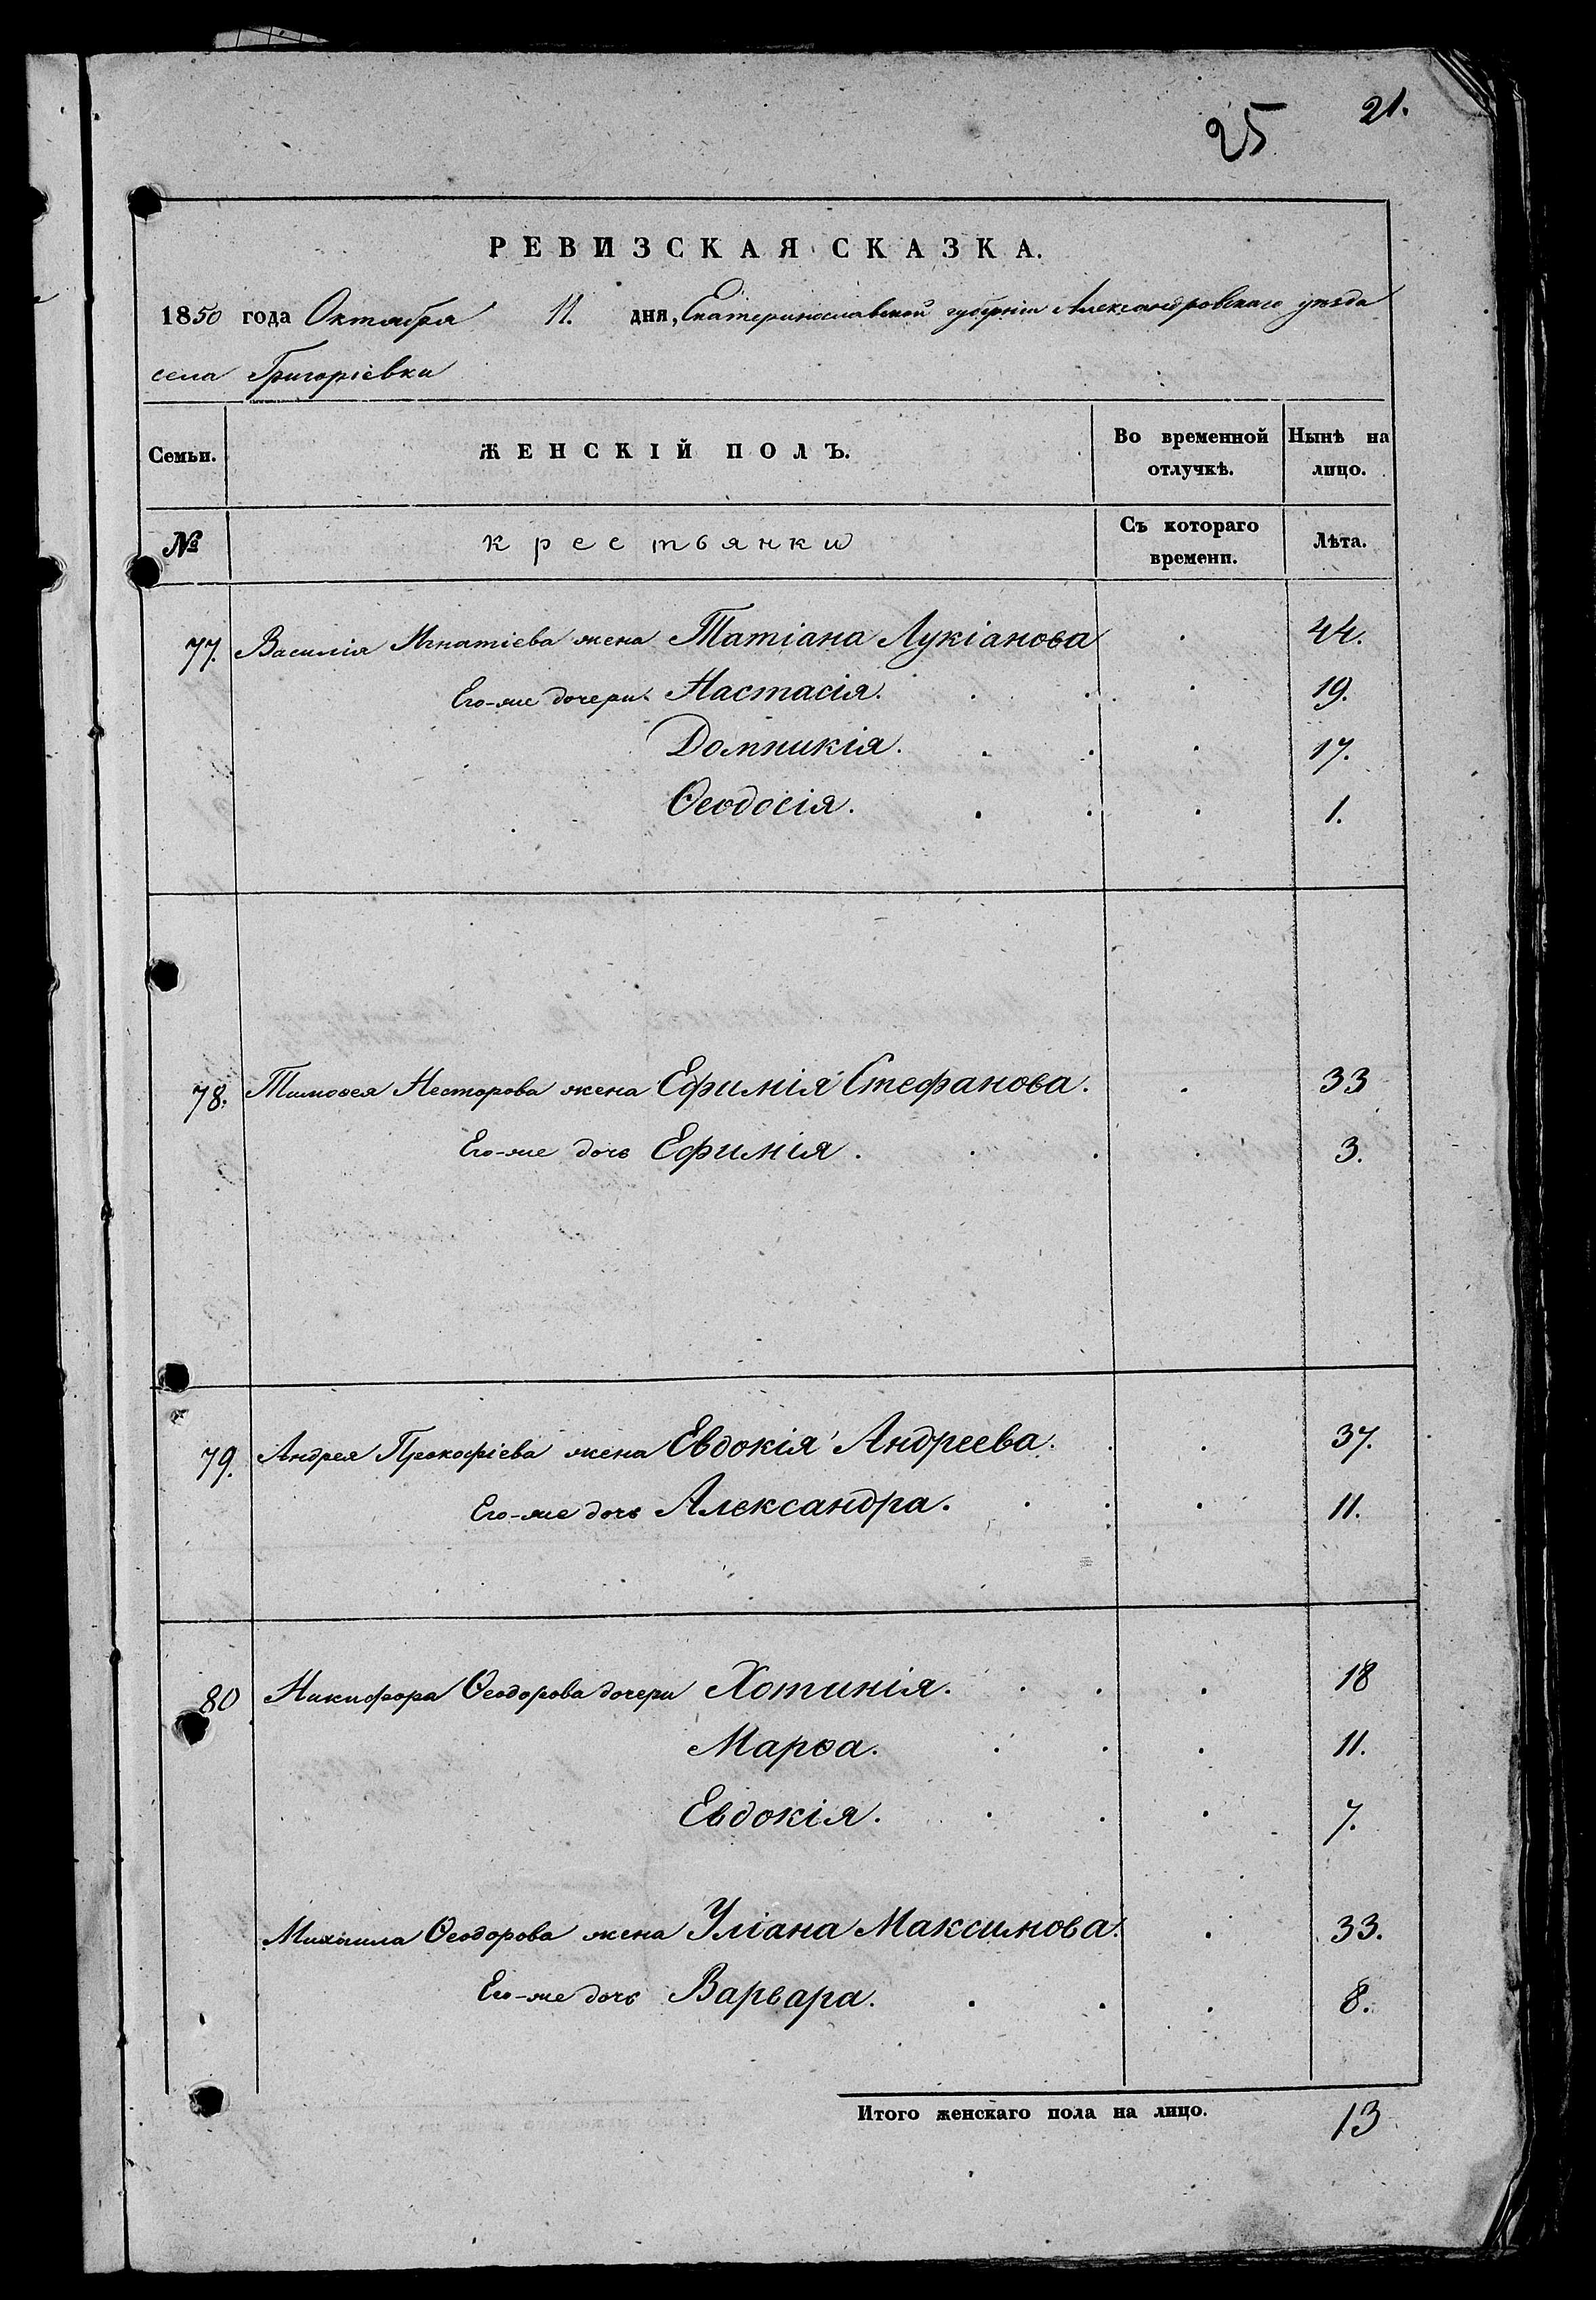 25 21.
РЕВИЗСКАЯ СКАЗКА.
1850 года Октября 11. дня, Екатеринославской губерніи Александровскаго уѣзда
села Григоріевки
Семьи. ЖЕНСКІЙ ПОЛЪ. Во временной отлучкѣ. Нынѣ на лицо.
№ крестьянки Съ котораго времени. Лѣта.
77. Василія Игнатіева жена Татіана Лукіанова . 44.
Его-же дочери Настасія. . 19.
Домникія. . 17.
Ѳеодосія. . 1.
78. Тимоѳея Несторова жена Ефимія Стефанова. . 33
Его-же дочь Ефимія. . 3.
79. Андрея Прокофіева жена Евдокія Андреева. . 37.
Его-же дочь Александра. . 11.
80 Никифора Ѳеодорова дочери Хотинія. . 18
Марѳа. . 11.
Евдокія. . 7.
Михаила Ѳеодорова жена Уліана Максимова. . 33.
Его-же дочь Варвара. . 8.
Итого женскаго пола на лицо. 13